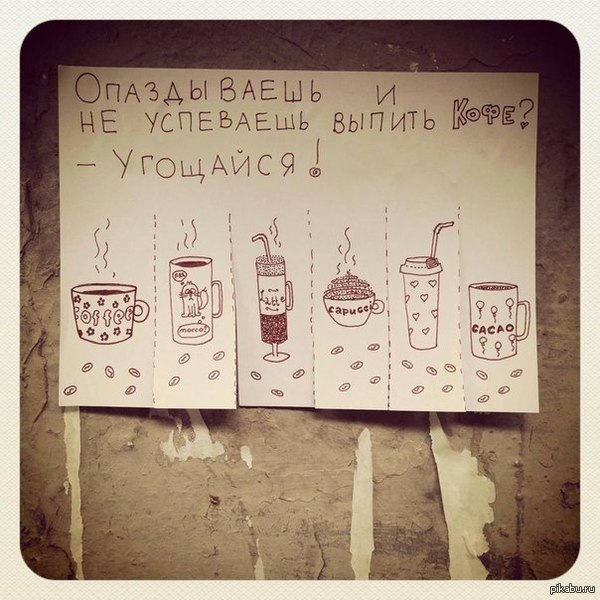 Опаздываешь и
не успеваешь выпить Кофе?
– Угощайся!
coffee
morco?
Latte
capucci
CACAO
pikabu.ru